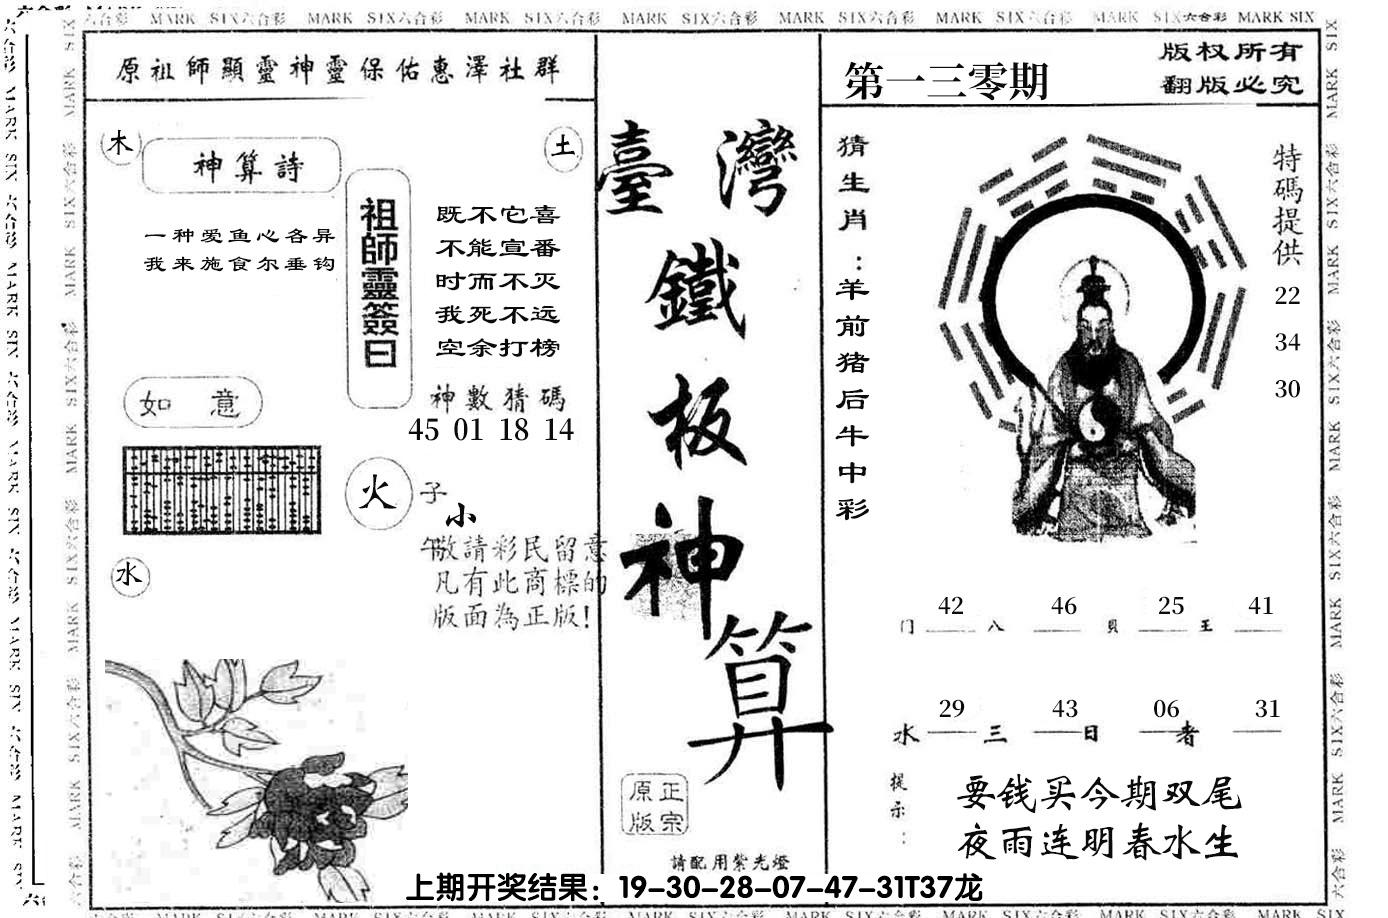 六合彩 MARK SIX六合彩 MARK SIX六合彩 MARK SIX六合彩 MARK SIX六合彩 MARK SIX六合彩 MARK SIX六合彩 MARK SIX六合彩 MARK SIX
原祖師顯靈神靈保佑惠澤社群
木
土
神算詩
一种爱鱼心各异
我来施食尔垂钩
祖師靈簽曰
既不它喜
不能宣番
时而不灭
我死不远
空余打榜
神數猜碼
45 01 18 14
如意
火
子
小
午
敬請彩民留意
凡有此商標的
版面為正版!
水
臺灣
鐵
板
神
算
原正
版宗
請配用紫光燈
第一三零期
版权所有
翻版必究
猜生肖:羊前猪后牛中彩
特碼提供
22
34
30
42 46 25 41
门 八 貝 王
29 43 06 31
水 三 日 者
提示:
要钱买今期双尾
夜雨连明春水生
上期开奖结果：19-30-28-07-47-31T37龙